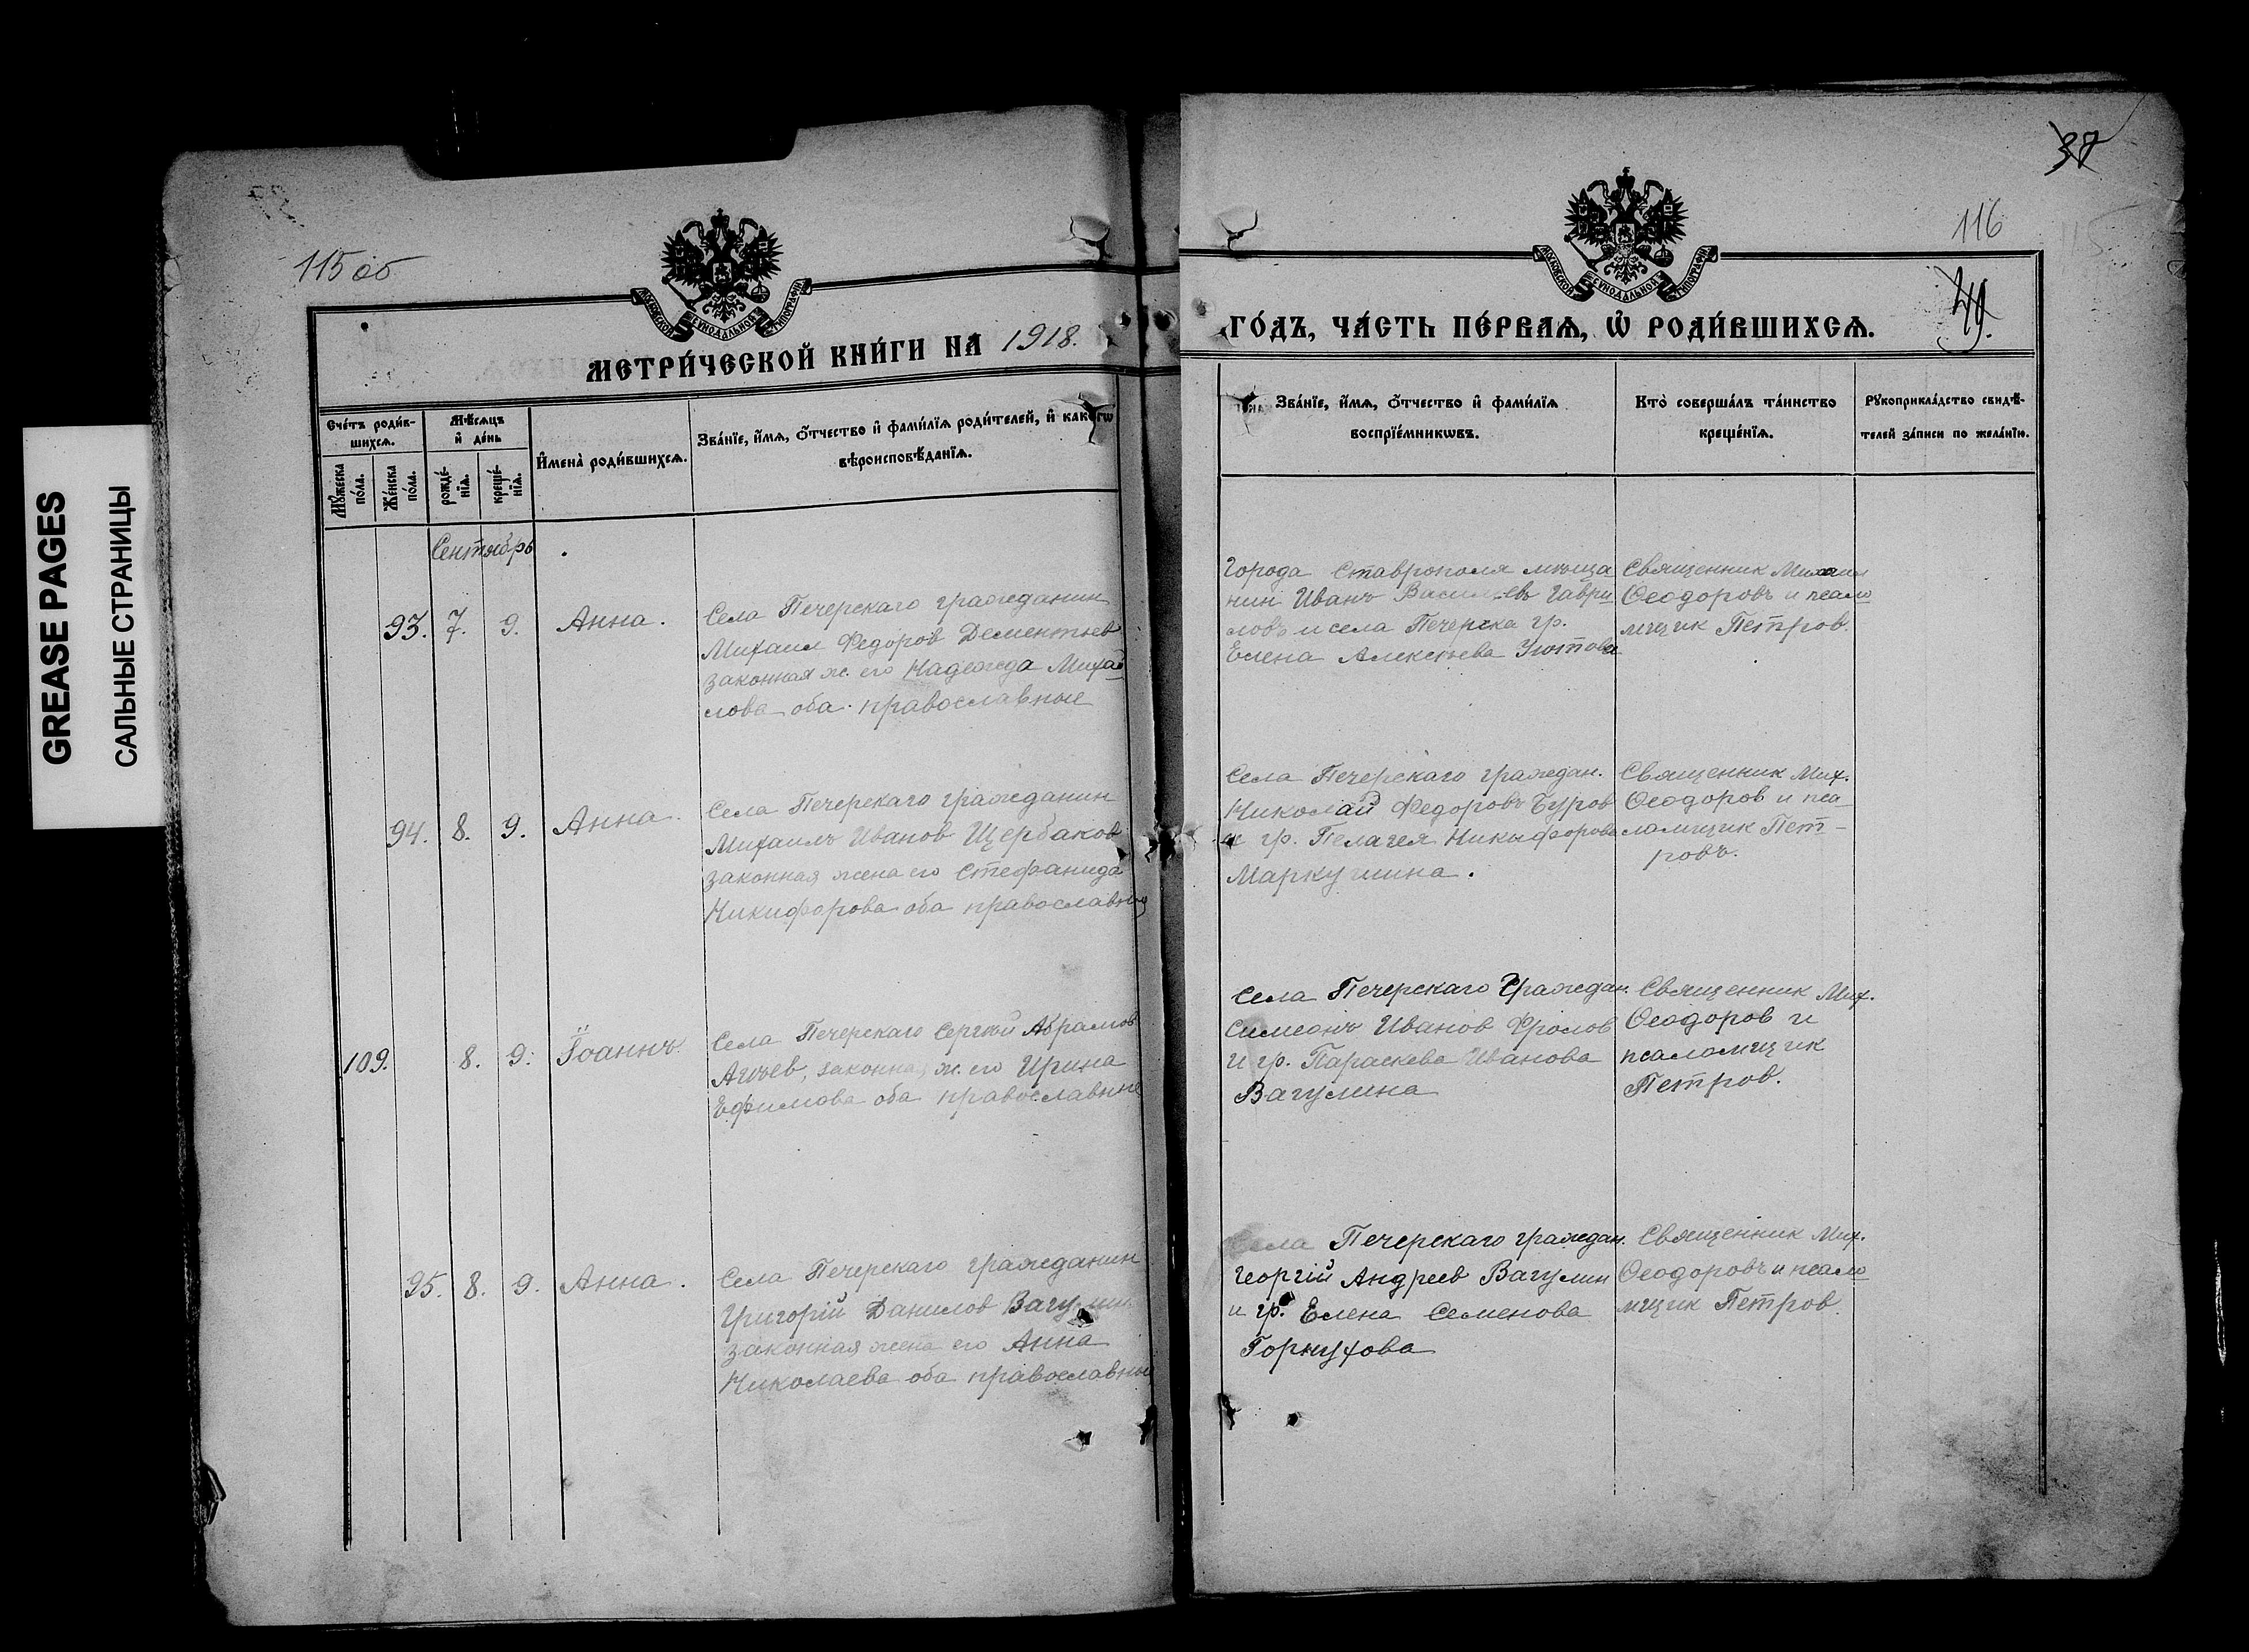 GREASE PAGES
САЛЬНЫЕ СТРАНИЦЫ
115 об
МОСКОВСКОЙ СѴНОДАЛЬНОЙ ТИПОГРАФІИ
МЕТРИ́ЧЕСКОЙ КНИ́ГИ НА 1918.
Сче́тъ роди́в-
шихсѧ.
Мѣ́сѧцъ
и҆ де́нь
И҆мена̀ роди́вшихсѧ.
Зва́нїе, и҆́мѧ, ѻ҆́тчество и҆ фами́лїѧ роди́телей, и҆ како́гѡ
вѣроисповѣ́данїѧ.
Мꙋ́жеска
по́ла.
Же́нска
по́ла.
рожде́-
нїѧ.
креще́-
нїѧ.
Сентябрь
93. 7. 9. Анна.
Села Печерскаго гражданин
Михаил Федоров Дементьев
законная ж. его Надежда Михай
лова оба православные
94. 8. 9. Анна.
Села Печерскаго гражданин
Михаилъ Иванов Щербаков
законная жена его Стефанида
Никифорова оба православны
109. 8. 9. Іоаннъ.
Села Печерскаго Сергѣй Абрамов
законная ж. его Ирина
Ефимова оба православные
95. 8. 9. Анна.
Села Печерскаго гражданин
Григорій Данилов Вагулин
законная жена его Анна
Николаева оба православные
37
116
115
49.
МОСКОВСКОЙ СѴНОДАЛЬНОЙ ТИПОГРАФІИ
ГО́ДЪ, ЧА́СТЬ ПЕ́РВАѦ, Ѡ҆ РОДИ́ВШИХСѦ.
Зва́нїе, и҆́мѧ, ѻ҆́тчество и҆ фами́лїѧ
воспрїе́мникѡвъ.
Кто̀ соверша́лъ та́инство
креще́нїѧ.
Рꙋкоприкла́дство свидѣ́-
телей за́писи по жела́нїю.
Города Ставрополя мѣща
нин Иванъ Васильевъ Гаври
ловъ и села Печерска гр.
Елена Алексѣева
Священник Михаил
Ѳеодоровъ и псало
мщик Петров.
Села Печерскаго граждан.
Николай Федоровъ Буров
и гр. Пелагея Никифорова
Маркушина.
Священник Мих.
Ѳеодоров и пса-
ломщик Пет-
ровъ.
Села Печерскаго Граждан.
Симеонъ Иванов Фролов
и гр. Параскева Иванова
Вагулина
Священник Мих.
Ѳеодоров и
псаломщик
Петров.
Села Печерскаго граждан.
Георгій Андреев Вагулин
и гр. Елена Семенова
Горнухова
Священник Мих.
Ѳеодоровъ и псало
мщик Петров.